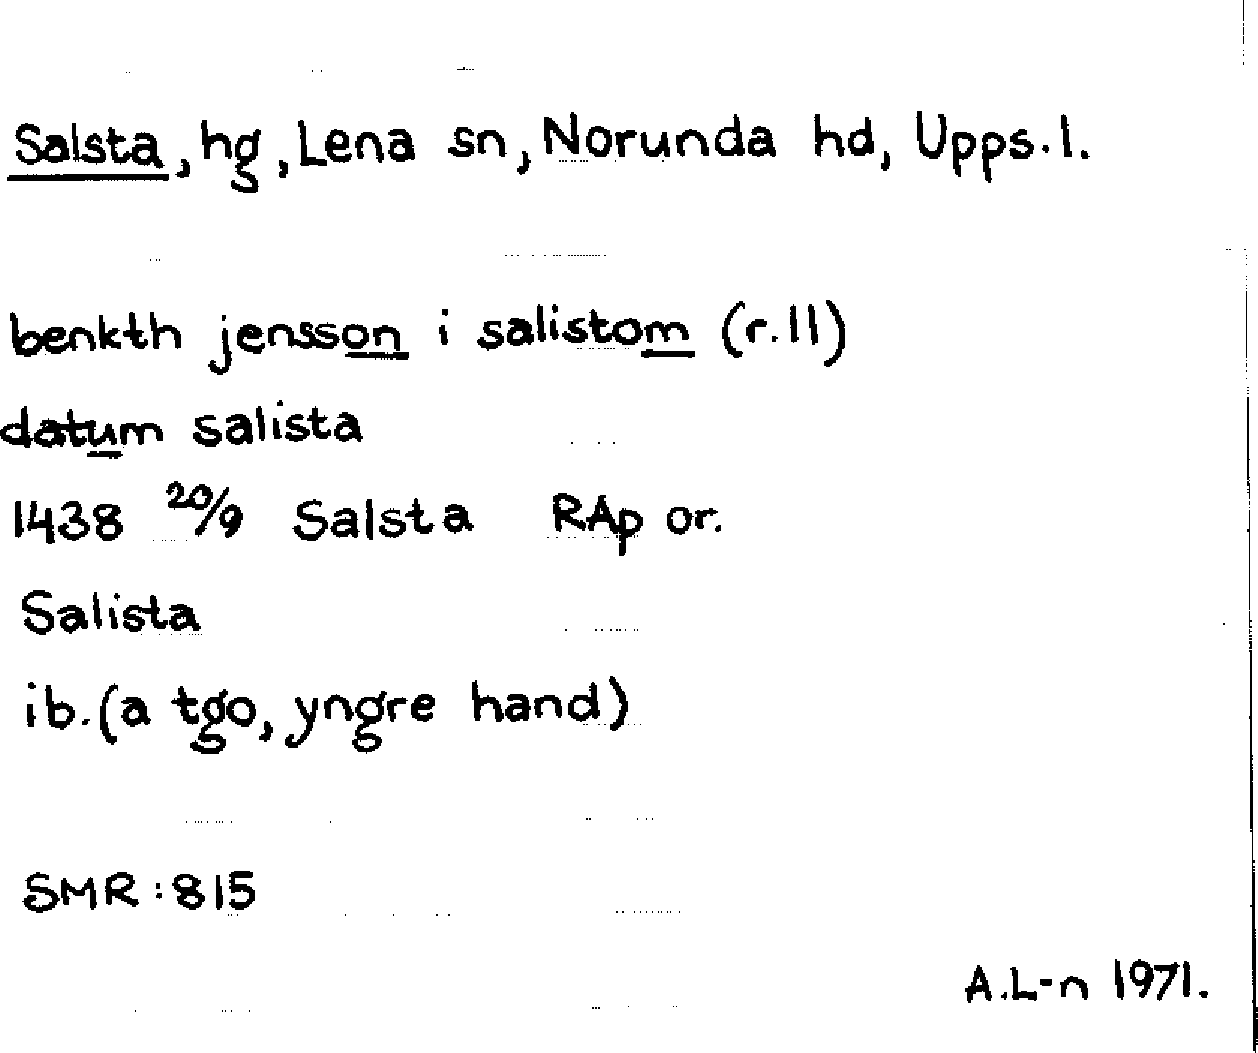 Salsta, hg, Lena sn, Norunda hd, Upps.l.
benkth jensson i salistom (r.11)
datum salista
1438 20/9 Salsta RAp or.
Salista
ib. (a tgo, yngre hand)
SMR:815
A.L-n 1971.